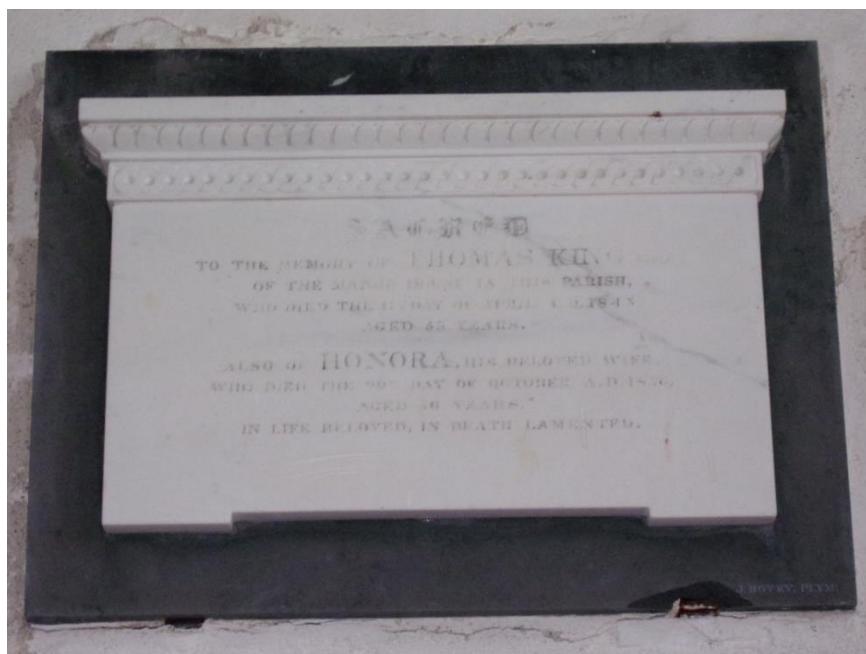 SACRED
TO THE MEMORY OF THOMAS KING
OF THE MANOR HOUSE IN THIS PARISH,
WHO DIED THE DAY OF APRIL A.D. 184
AGED YEARS.
ALSO OF HONORA, HIS BELOVED WIFE,
WHO DIED THE DAY OF OCTOBER A.D.
AGED YEARS.
IN LIFE BELOVED, IN DEATH LAMENTED.
J. BOVEY, PLYM